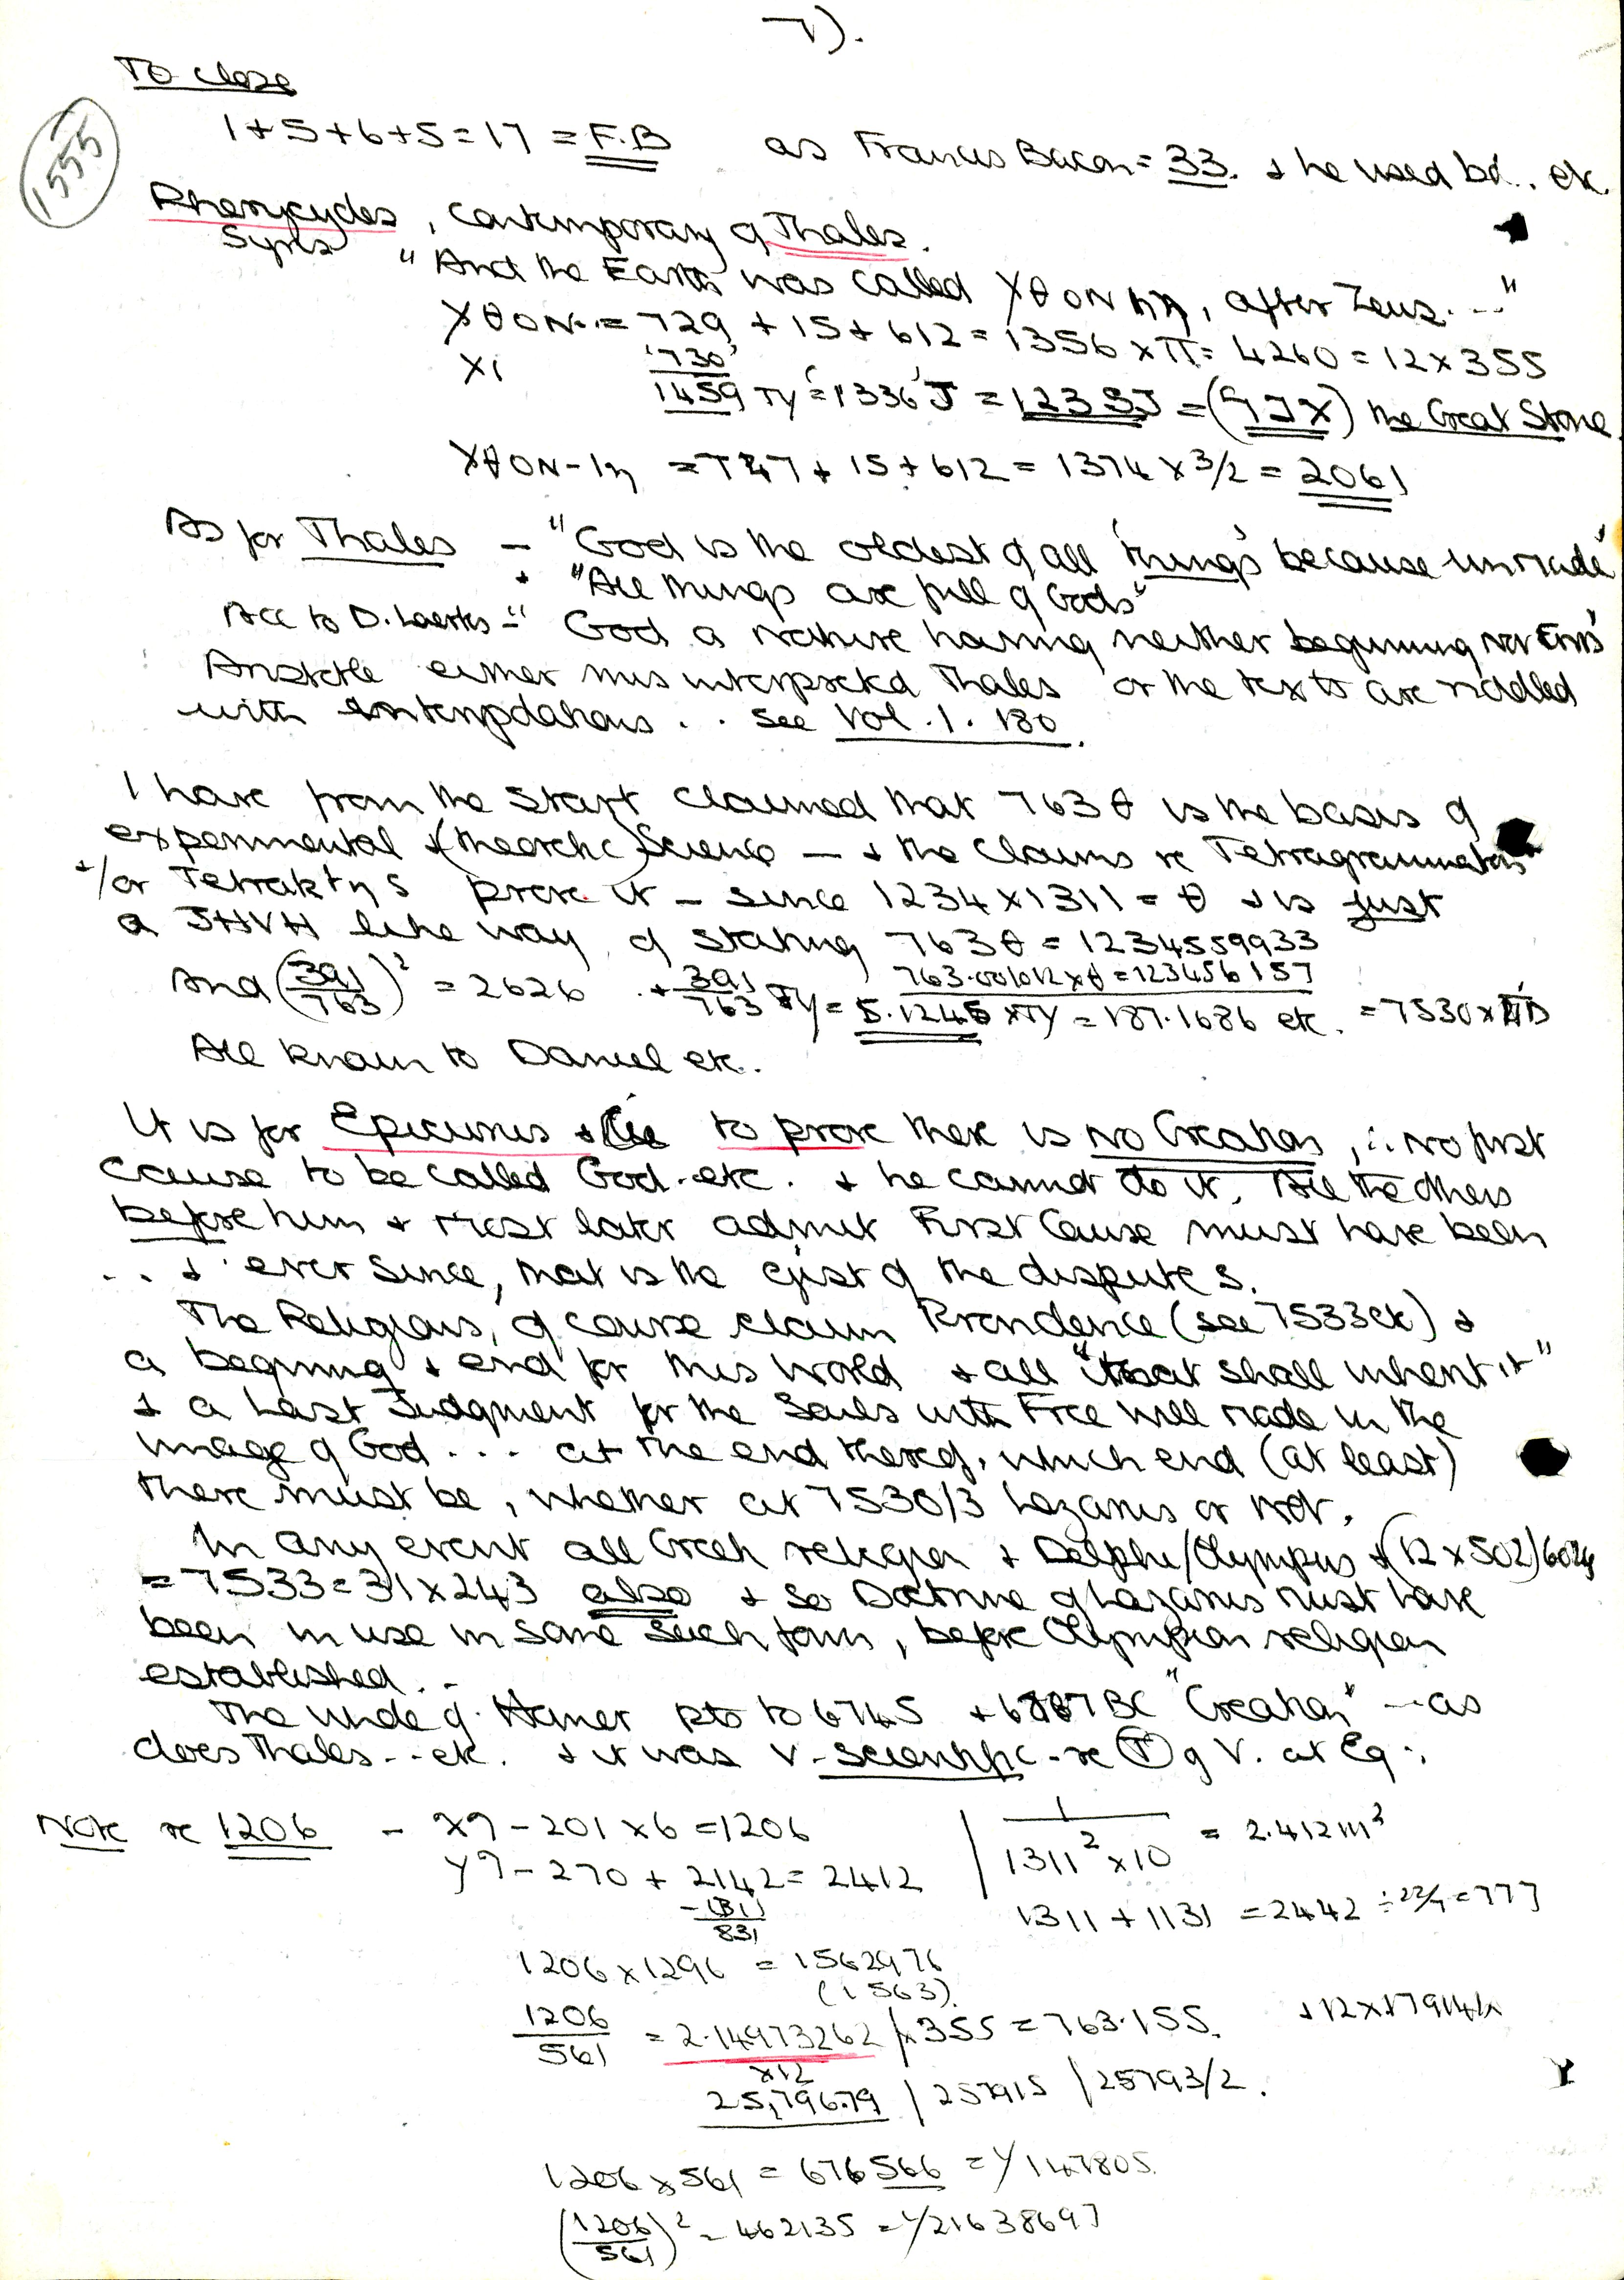 7).
To close
1555
1+5+6+5=17 = F.B as Francis Bacon = 33. + he used bd. etc.
Pherycydes, contemporary of Thales.
Syrus "And the Earth was called ΧθON ιη, after Zeus. --"
ΧθON.. = 729 + 15 + 612 = 1356 x π = 4260 = 12 x 355
Xι '730'
1459 TY = '1336' J = 123 SJ = the Great Stone
ΧθON-ιη = 747 + 15 + 612 = 1374 x 3/2 = 2061
As for Thales - "God is the oldest of all 'things' because unmade"
+ "All things are full of Gods"
Acc to D. Laertes = "God a nature having neither beginning nor End"
Aristotle either misinterpreted Thales or the texts are riddled
with . . see Vol. 1. 180.
I have from the start claimed that 763 θ is the basis of
experimental + (theoretic) Science — + the claims re Tetragrammaton
+/or Tetraktys prove it - since 1234 x 1311 = θ + is just
a JHVH like way of stating 763 θ = 1234559933
763.001012 x θ = 123456157
And (391/763)² = 2626 . + 391/763 TY = 5.1245 x TY = 187.1686 etc. = 7530 x
All known to Daniel etc..
It is for Epicurus + Co to prove there is no Creation, ∴ no first
cause to be called God. etc. + he cannot do it. All the others
before him + most later admit First Cause must have been
. . + ever since, that is the gist of the disputes.
The Religions, of course claim Providence (see 7533 etc) +
a beginning + end for this world + all "that shall inherit it"
+ a Last Judgment for the Souls with Free will made in the
image of God . . . at the end thereof, which end (at least)
there must be, whether at 7530/3 Lazarus or not.
In any event all Greek religion + Delphi/Olympus + (12 x 502) 6024
= 7533 = 31 x 243 also + so Doctrine of Lazarus must have
been in use in some such form, before Olympian religion
established. .
The whole of Homer pts to 6745 + BC "Creation" — as
does Thales.. etc. + it was v. scientific - re (T) of V. at Eq.
Note re 1206 - - 201 x 6 = 1206 | 1/(1311² x 10) = 2.412 m³
- 270 + 2142 = 2412
- 1311
831
1311 + 1131 = 2442 ÷ 22/7 = 777
1206 x 1296 = 1562976
(1563).
1206/561 = 2.14973262 / x 355 = 763.155. + 12 x
x12
25,796.79 | 257915 | 25793/2.
1206 x 561 = 676566 = 1/147805.
(1206/561)² = 462135 = 1/21638697